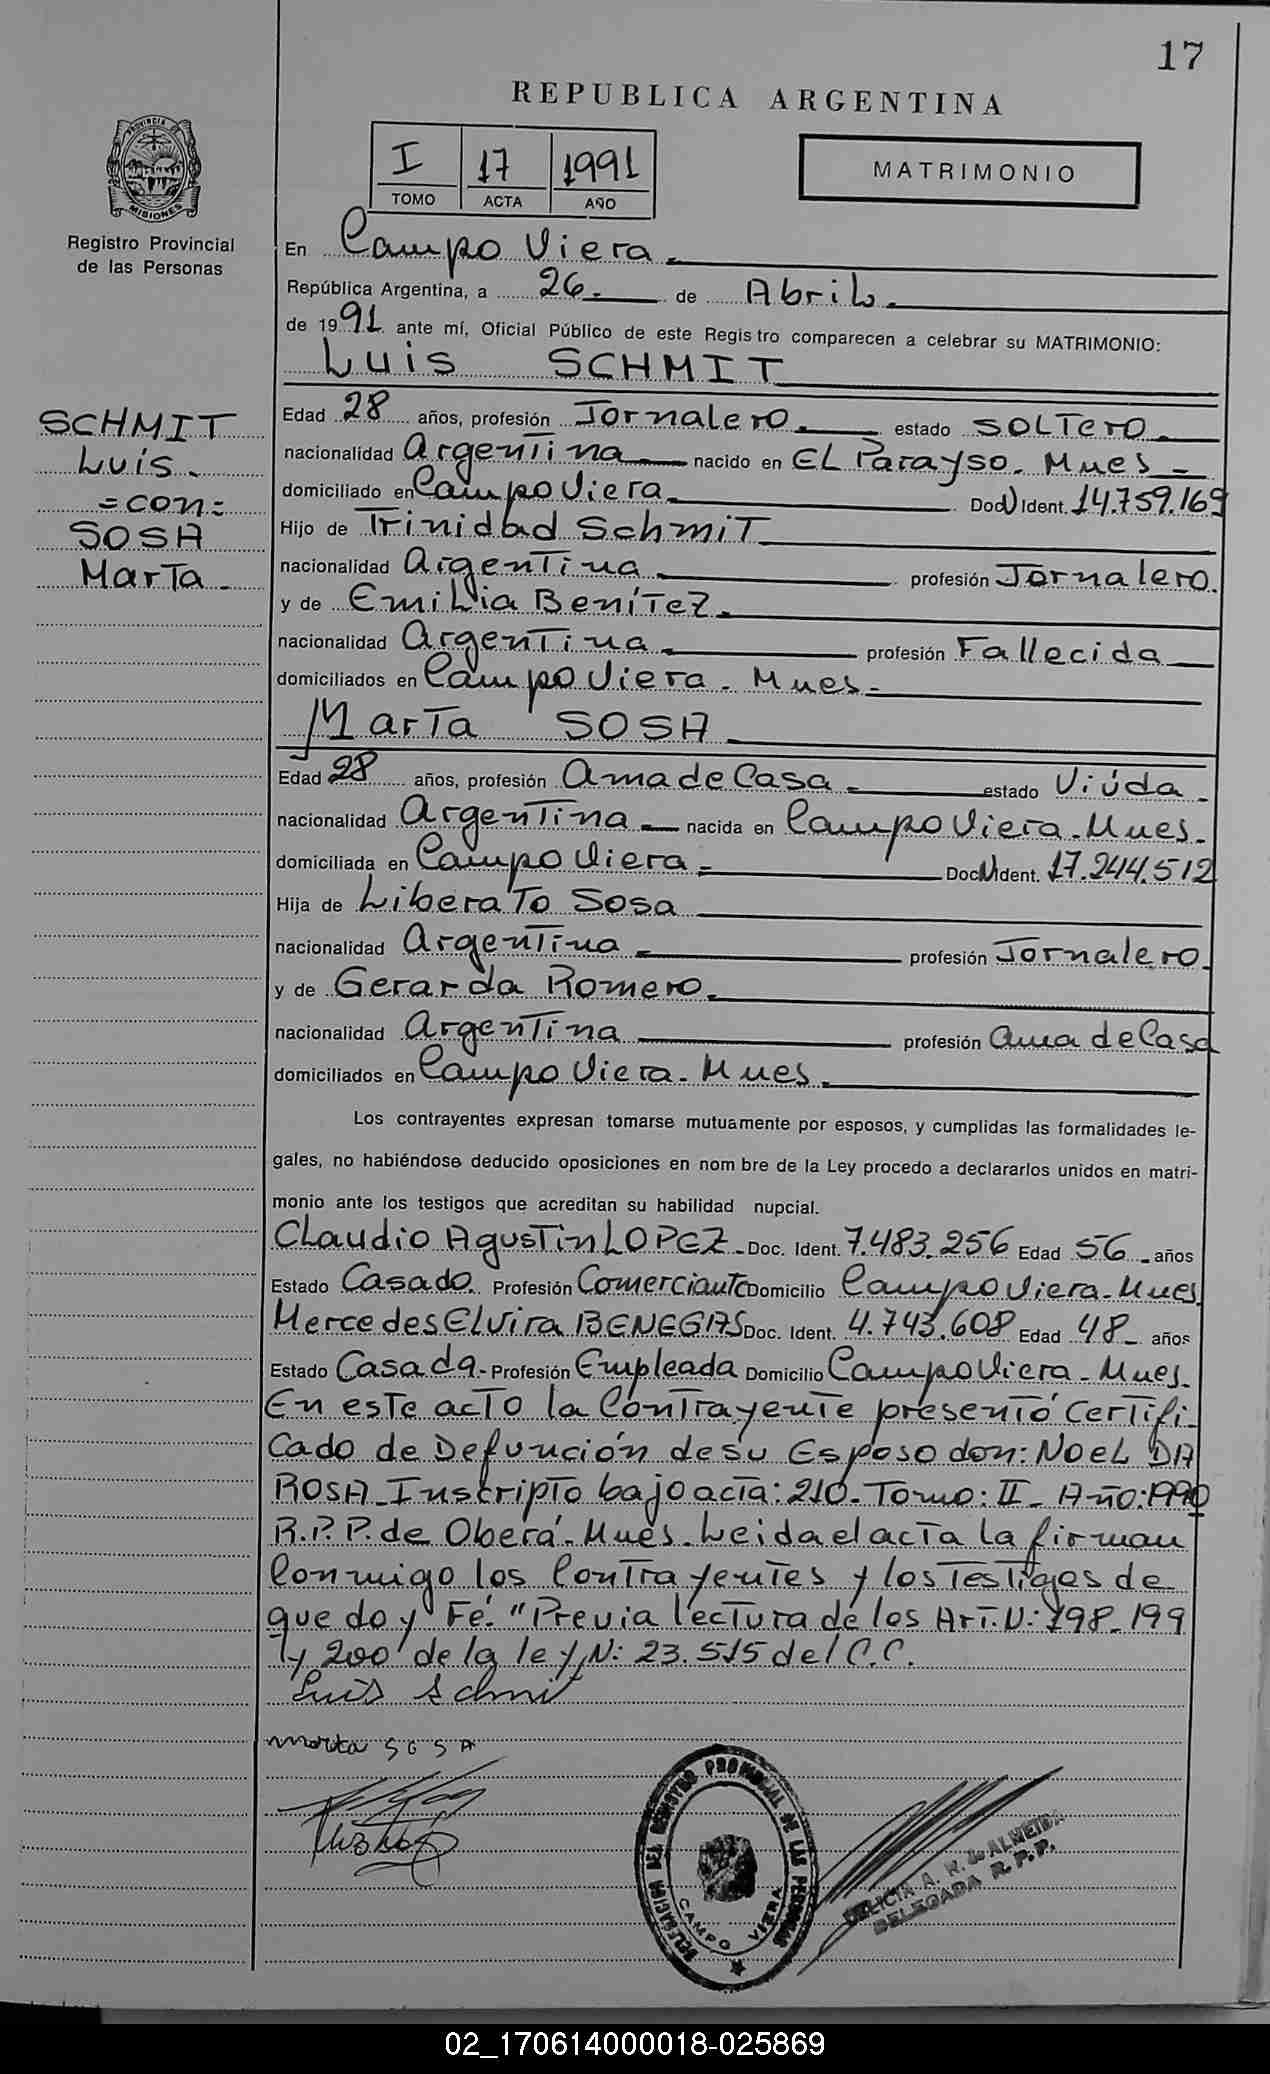 17
REPUBLICA ARGENTINA
I 17 1991
TOMO ACTA AÑO
MATRIMONIO
PROVINCIA DE
MISIONES
Registro Provincial
de las Personas
En Campo Viera.
República Argentina, a 26. de Abril.
de 1991 ante mí, Oficial Público de este Registro comparecen a celebrar su MATRIMONIO:
Luis SCHMIT
SCHMIT
Luis.
=con=
SOSA
Marta.
Edad 28 años, profesión Jornalero. estado SOLTERO.
nacionalidad Argentina nacido en EL Parayso. Mnes.
domiciliado en Campo Viera. Doc N Ident. 14.759.169
Hijo de Trinidad Schmit
nacionalidad Argentina. profesión Jornalero.
y de Emilia Benítez.
nacionalidad Argentina. profesión Fallecida
domiciliados en Campo Viera. Mnes.
Marta SOSA
Edad 28 años, profesión Ama de Casa. estado Viúda.
nacionalidad Argentina nacida en Campo Viera. Mnes.
domiciliada en Campo Viera. Doc N Ident. 17.244.512
Hija de Liberato Sosa
nacionalidad Argentina. profesión Jornalero.
y de Gerarda Romero.
nacionalidad Argentina profesión ama de Casa
domiciliados en Campo Viera. Mnes.
Los contrayentes expresan tomarse mutuamente por esposos, y cumplidas las formalidades le-
gales, no habiéndose deducido oposiciones en nombre de la Ley procedo a declararlos unidos en matri-
monio ante los testigos que acreditan su habilidad nupcial.
Claudio Agustin LOPEZ. Doc. Ident. 7.483.256 Edad 56 años
Estado Casado. Profesión Comerciante Domicilio Campo Viera. Mnes.
Mercedes Elvira BENEGAS Doc. Ident. 4.743.608 Edad 48 años
Estado Casada. Profesión Empleada Domicilio Campo Viera. Mnes.
En este acto la Contrayente presentó Certifi-
cado de Defunción de su Esposo don: NOEL DA
ROSA. Inscripto bajo acta: 210. Tomo: II. Año: 1990
R.P.P. de Oberá. Mnes. Leida el acta la firman
Conmigo los Contrayentes y los Testigos de
que doy Fé. "Previa lectura de los Art. N: 198. 199
y 200 de la ley N: 23.515 del C.C.
Luis Schmit
marta SOSA
DELEGACION DEL REGISTRO PROVINCIAL DE LAS PERSONAS
CAMPO VIERA
DELICIA A. W. de ALMEIDA
DELEGADA R.P.P.
02_170614000018-025869